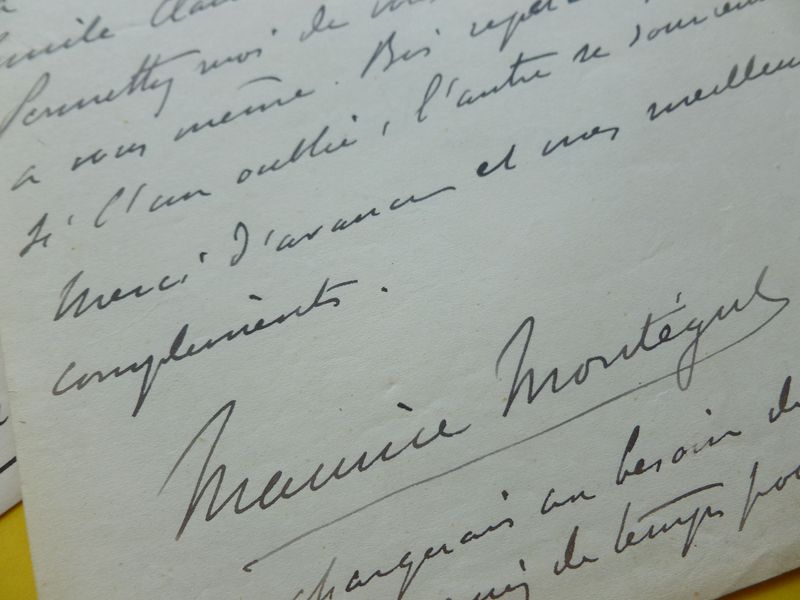 Permettez moi de vous
a vous même. Bis repet
si l'un oublie, l'autre se souvien
Merci d'avance et mes meilleur
compliments.
Maurice Montégut
changerais au besoin de
de temps pou